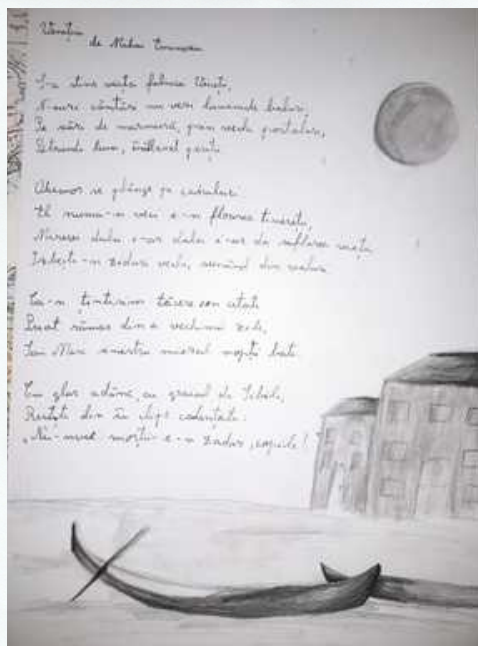 Veneția
de Mihai Eminescu
S-a stins viața falnicii Veneții,
N-auzi cântări, nu vezi lumine de baluri;
Pe scări de marmură, prin vechi portaluri,
Pătrunde luna, înălbind pereții.
Okeanos se plânge pe canaluri...
El numa-n veci e-n floarea tinereții,
Miresei dulci i-ar da suflarea vieții,
Izbește-n ziduri vechi, sunând din valuri.
Ca-n țintirim tăcere e-n cetate.
Preot rămas din a vechimii zile,
San Marc sinistru miezul nopții bate.
Cu glas adânc, cu graiul de Sibile,
Rostește lin în clipe cadențate:
„Nu-nvie morții e-n zadar, copile!"